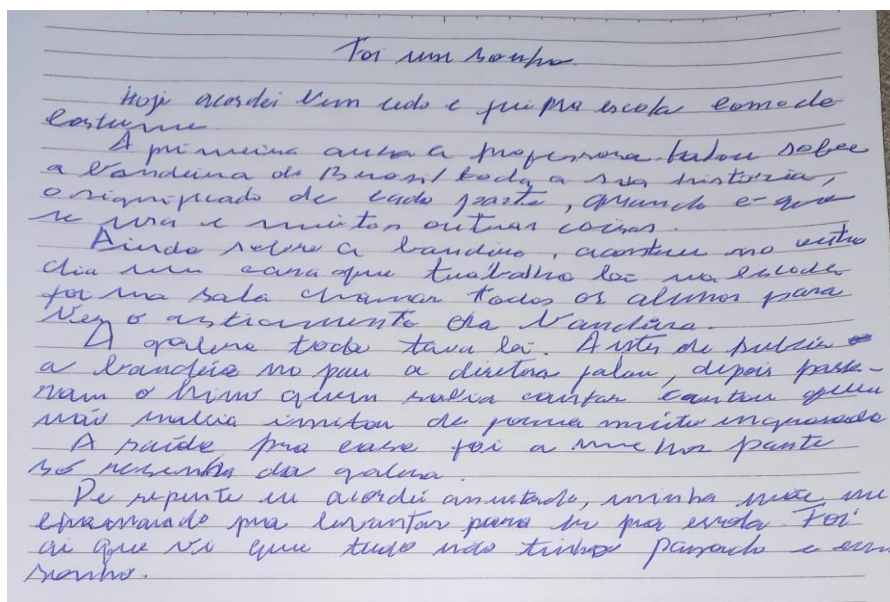 Foi um sonho
Hoje acordei bem cedo e fui pra escola como de
costume.
A primeira aula a professora falou sobre
a bandeira do Brasil toda a sua história,
o significado de cada parte, quando é que
se usa e muitas outras coisas.
Ainda sobre a bandeira, no outro
dia um cara que trabalha lá na escola,
foi na sala chamar todos os alunos para
ver o asteamento da bandeira.
A galera toda tava lá. Antes de
a bandeira no pau a diretora falou, depois
o hino quem sabia cantar cantou quem
não sabia imitou de forma muito engraçada
A saída pra casa foi a melhor parte
só resenha da galera.
De repente eu acordei assustado, minha mãe me
pra levantar para ir pra escola. Foi
ai que vi que tudo não tinha passado
sonho.